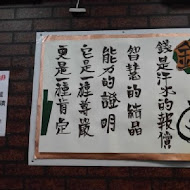 錢是汗水的報償
智慧的結晶
能力的證明
它是一種尊嚴
更是一種肯定